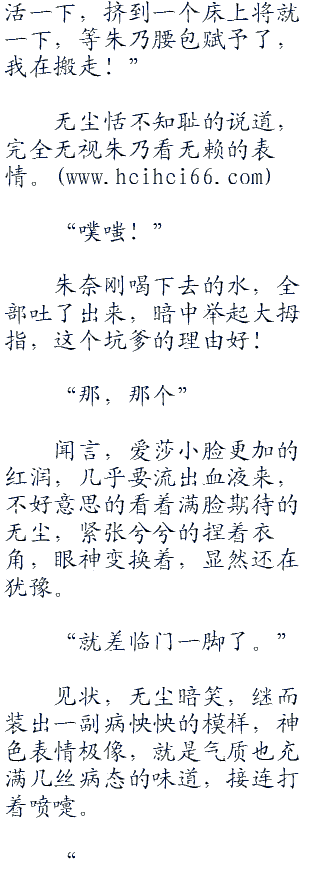 活一下，挤到一个床上将就
一下，等朱乃腰包赋予了，
我在搬走！”
无尘恬不知耻的说道，
完全无视朱乃看无赖的表
情。(www.hcihci66.com)
“噗嗤！”
朱奈刚喝下去的水，全
部吐了出来，暗中举起大拇
指，这个坑爹的理由好！
“那，那个”
闻言，爱莎小脸更加的
红润，几乎要流出血液来，
不好意思的看着满脸期待的
无尘，紧张兮兮的捏着衣
角，眼神变换着，显然还在
犹豫。
“就差临门一脚了。”
见状，无尘暗笑，继而
装出一副病怏怏的模样，神
色表情极像，就是气质也充
满几丝病态的味道，接连打
着喷嚏。
“